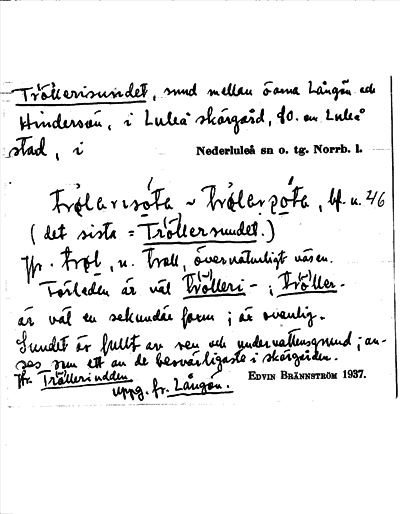 Tröllerisundet, sund mellan öarna Långön och
Hindersön, i Luleå skärgård, fo. om Luleå
stad, i Nederluleå sn o. tg. Norrb. l.
trølarısöta ~ trølarsöta, bf. u. 246
(det sista = Tröllersundet.)
Jfr. trøl, n. troll, övernaturligt väsen.
Förleden är väl trölleri-; tröller-
är väl en sekundär form; är ovanlig.
Sundet är fullt av rev och undervattensgrund; an-
ses som ett av de besvärligaste i skärgården.
Jfr. Trölleriudden.
Uppg. fr. Långön.
Edvin Brännström 1937.